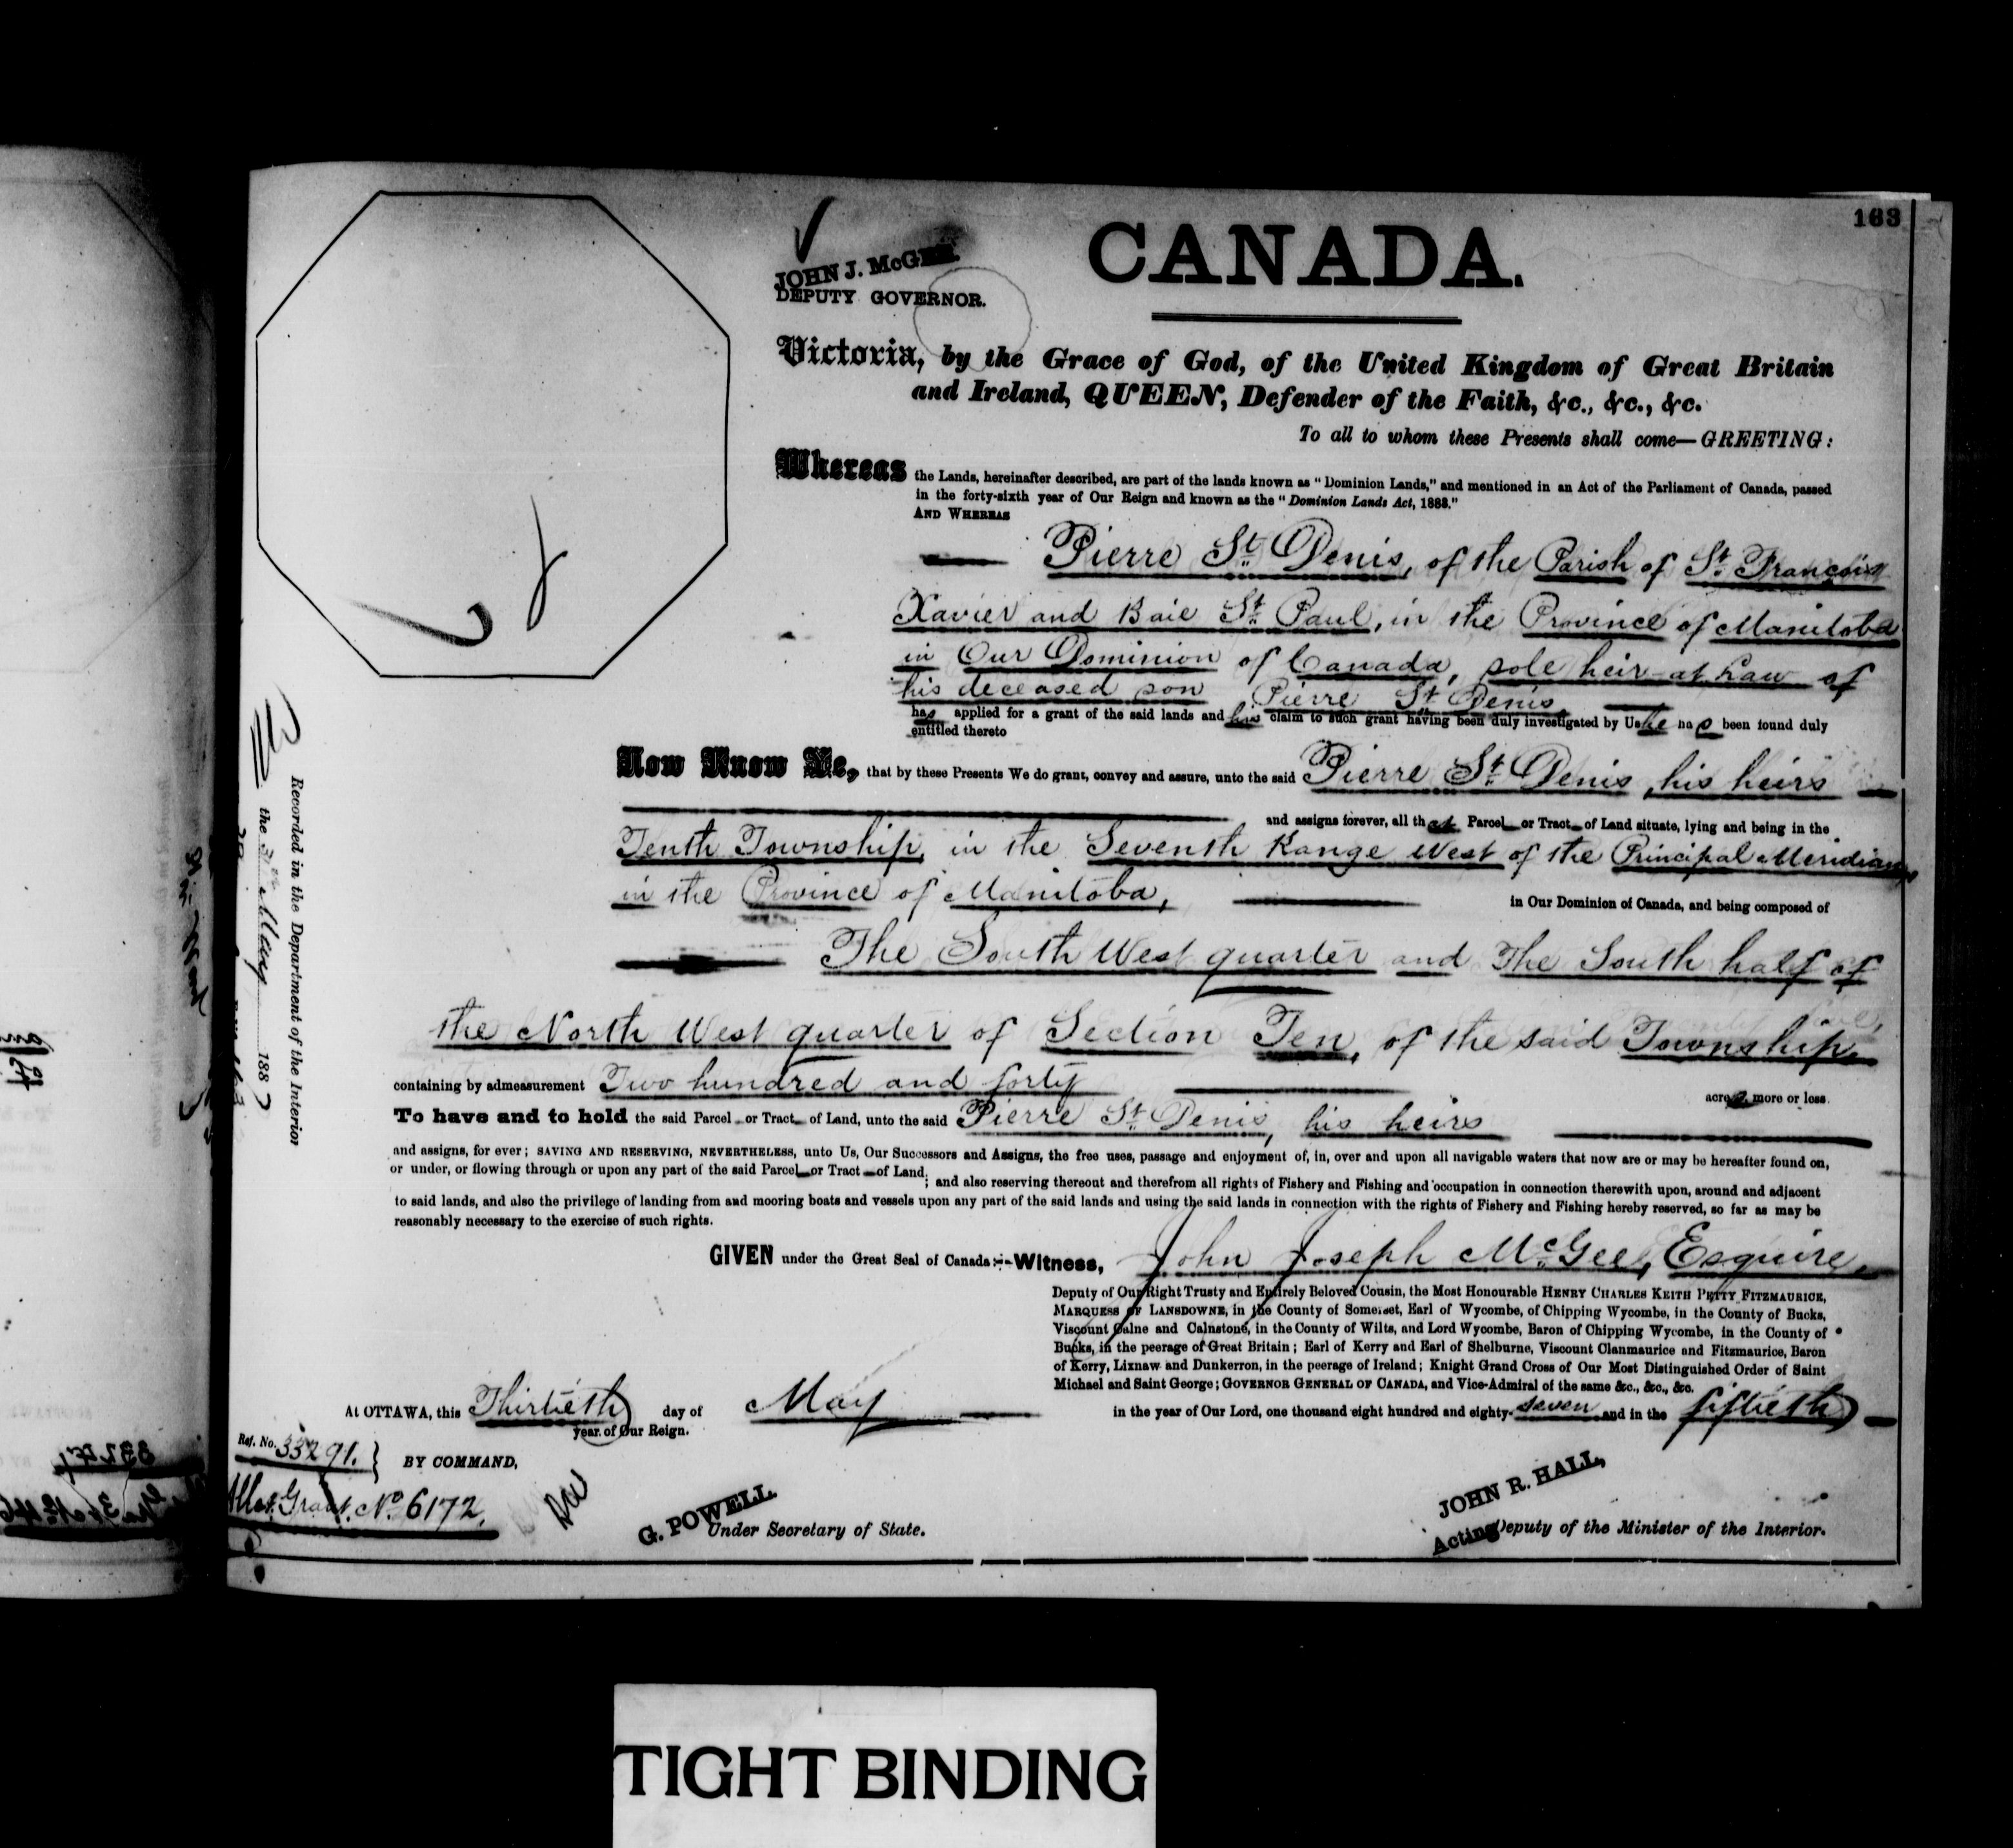 163
JOHN J. McGEE.
DEPUTY GOVERNOR.
CANADA.
Victoria, by the Grace of God, of the United Kingdom of Great Britain
and Ireland, QUEEN, Defender of the Faith, &c., &c., &c.
To all to whom these Presents shall come—GREETING:
Whereas the Lands, hereinafter described, are part of the lands known as "Dominion Lands," and mentioned in an Act of the Parliament of Canada, passed
in the forty-sixth year of Our Reign and known as the "Dominion Lands Act, 1883."
AND WHEREAS
Pierre St. Denis, of the Parish of St. François
Xavier and Baie St. Paul, in the Province of Manitoba
in Our Dominion of Canada, sole heir-at-Law of
his deceased son Pierre St. Denis
has applied for a grant of the said lands and his claim to such grant having been duly investigated by Us he has been found duly
entitled thereto
Now Know Ye, that by these Presents We do grant, convey and assure, unto the said Pierre St. Denis, his heirs
and assigns forever, all that Parcel or Tract of Land situate, lying and being in the
Tenth Township, in the Seventh Range West of the Principal Meridian,
in the Province of Manitoba, in Our Dominion of Canada, and being composed of
The South West quarter and The South half of
the North West quarter of Section Ten, of the said Township,
containing by admeasurement Two hundred and forty acres, more or less.
To have and to hold the said Parcel or Tract of Land, unto the said Pierre St. Denis, his heirs
and assigns, for ever; SAVING AND RESERVING, NEVERTHELESS, unto Us, Our Successors and Assigns, the free uses, passage and enjoyment of, in, over and upon all navigable waters that now are or may be hereafter found on,
or under, or flowing through or upon any part of the said Parcel or Tract of Land; and also reserving thereout and therefrom all rights of Fishery and Fishing and occupation in connection therewith upon, around and adjacent
to said lands, and also the privilege of landing from and mooring boats and vessels upon any part of the said lands and using the said lands in connection with the rights of Fishery and Fishing hereby reserved, so far as may be
reasonably necessary to the exercise of such rights.
GIVEN under the Great Seal of Canada:—Witness, John Joseph McGee, Esquire,
Deputy of Our Right Trusty and Entirely Beloved Cousin, the Most Honourable HENRY CHARLES KEITH PETTY FITZMAURICE,
MARQUESS OF LANSDOWNE, in the County of Somerset, Earl of Wycombe, of Chipping Wycombe, in the County of Bucks,
Viscount Calne and Calnstone, in the County of Wilts, and Lord Wycombe, Baron of Chipping Wycombe, in the County of
Bucks, in the peerage of Great Britain; Earl of Kerry and Earl of Shelburne, Viscount Clanmaurice and Fitzmaurice, Baron
of Kerry, Lixnaw and Dunkerron, in the peerage of Ireland; Knight Grand Cross of Our Most Distinguished Order of Saint
Michael and Saint George; GOVERNOR GENERAL OF CANADA, and Vice-Admiral of the same &c., &c., &c.
At OTTAWA, this Thirtieth day of May in the year of Our Lord, one thousand eight hundred and eighty-seven and in the fiftieth
year of Our Reign.
Ref. No. 33291. } BY COMMAND,
Grant No. 6172.
G. POWELL.
Under Secretary of State.
JOHN R. HALL,
Acting Deputy of the Minister of the Interior.
Recorded in the Department of the Interior
the May 1887
TIGHT BINDING